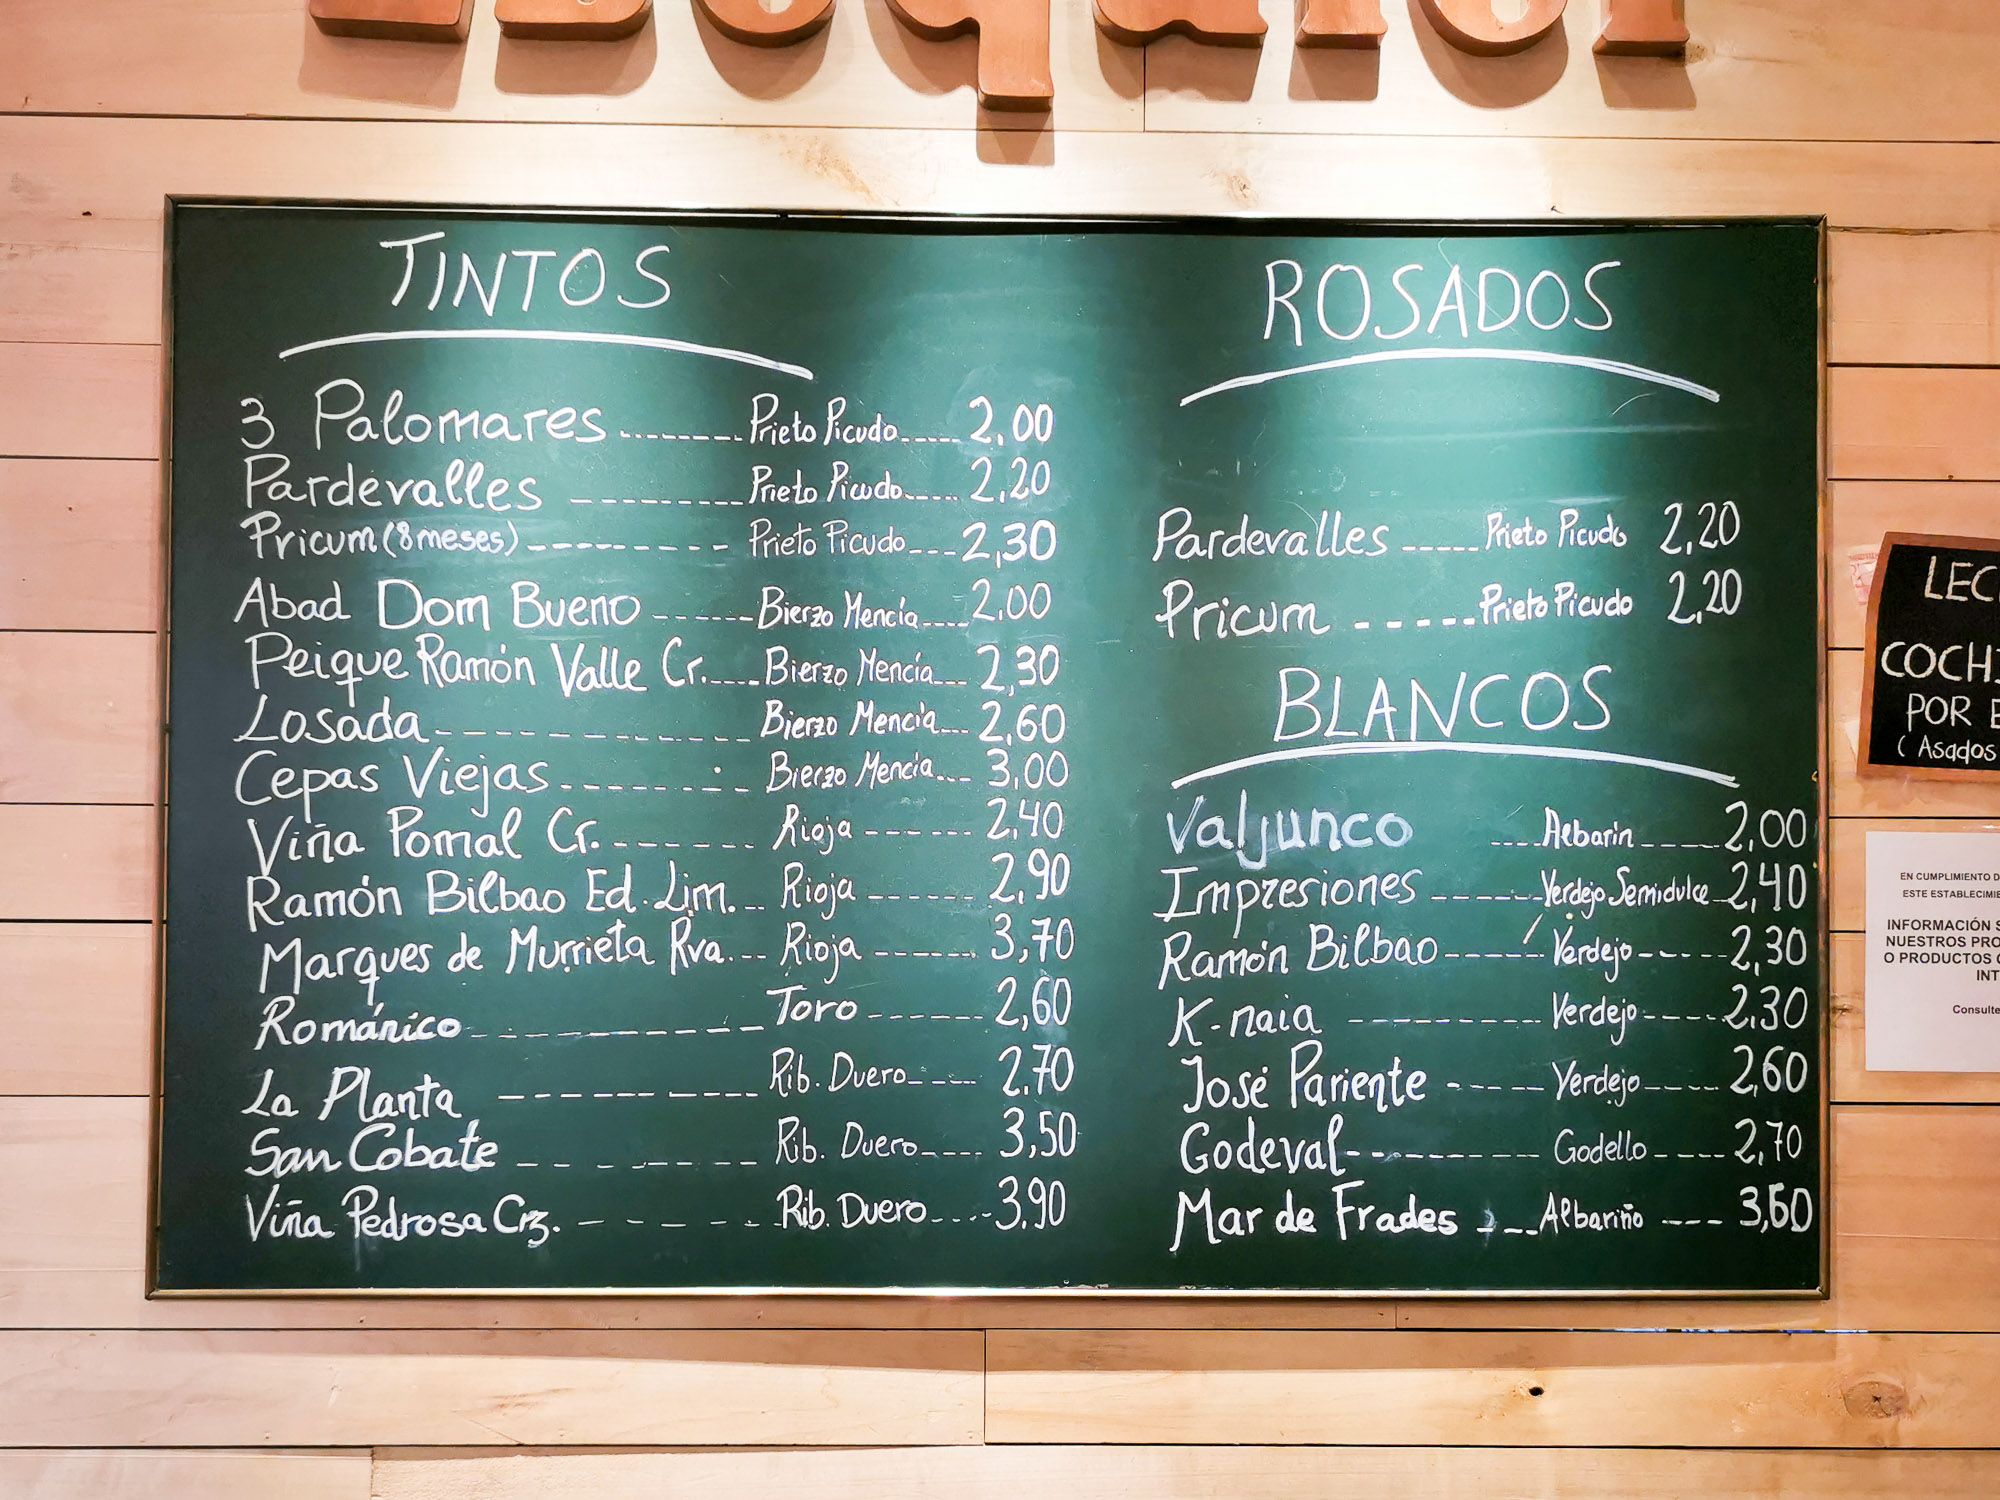 TINTOS
3 Palomares ....... Prieto Picudo ..... 2,00
Pardevalles ------- Prieto Picudo ..... 2,20
Pricum (8 meses) --------- Prieto Picudo --- 2,30
Abad Dom Bueno ------ Bierzo Mencía .... 2,00
Peique Ramón Valle Cr. .... Bierzo Mencía --- 2,30
Losada ------------ Bierzo Mencía --- 2,60
Cepas Viejas -------- Bierzo Mencía --- 3,00
Viña Pomal Cr. ------ Rioja ------ 2,40
Ramón Bilbao Ed. Lim. -- Rioja ------ 2,90
Marques de Murrieta Rva. -- Rioja ------ 3,70
Románico ------------ Toro ------ 2,60
La Planta ---------- Rib. Duero ---- 2,70
San Cobate -------- Rib. Duero ---- 3,50
Viña Pedrosa Crz. ------- Rib. Duero ---- 3,90
ROSADOS
Pardevalles ----- Prieto Picudo 2,20
Pricum ------ Prieto Picudo 2,20
BLANCOS
Valjunco .... Albarín ----- 2,00
Impresiones ------ Verdejo Semidulce - 2,40
Ramón Bilbao ------ Verdejo ----- 2,30
K-naia --------- Verdejo ---- 2,30
José Pariente ----- Verdejo ---- 2,60
Godeval --------- Godello ---- 2,70
Mar de Frades --- Albariño --- 3,60
POR
( Asados
EN CUMPLIMIENTO
ESTE
INFORMACIÓN
NUESTROS
O PRODUCTOS
Consulte